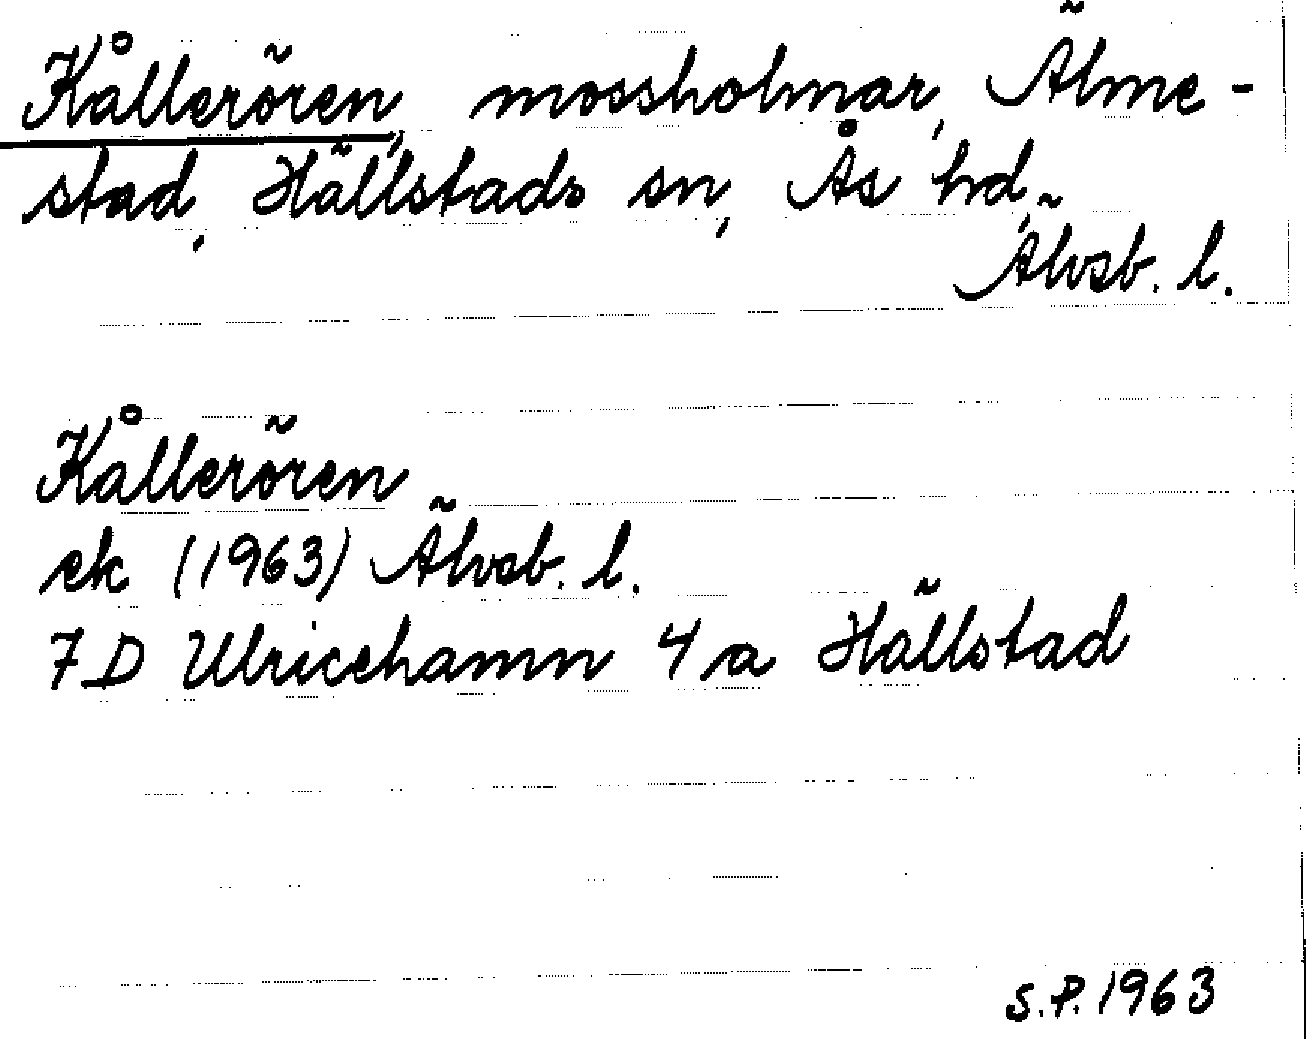 Kållerören, mossholmar, Älme-
stad, Hällstads sn, Ås hd,
Älvsb. l.
Kållerören
ek (1963) Älvsb. l.
7D Ulricehamn 4a Hällstad
S.P. 1963